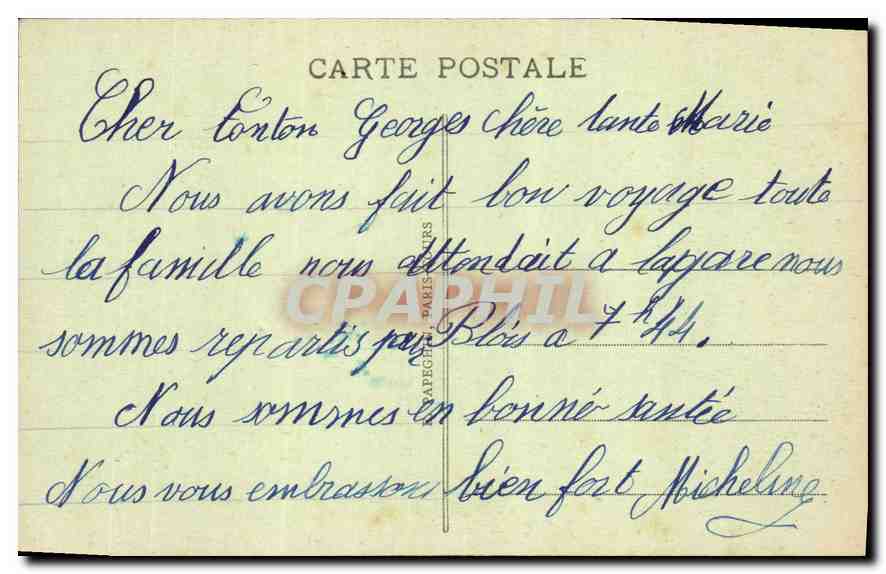 CARTE POSTALE
Cher tonton Georges chère tante Marie
Nous avons fait bon voyage toute
la famille nous attendait a lagare nous
sommes repartis par Blois a 7h44.
Nous sommes en bonné santée
Nous vous embrassons bien fort Micheline
PAPEGHIN, PARIS-TOURS
CPAPHIL